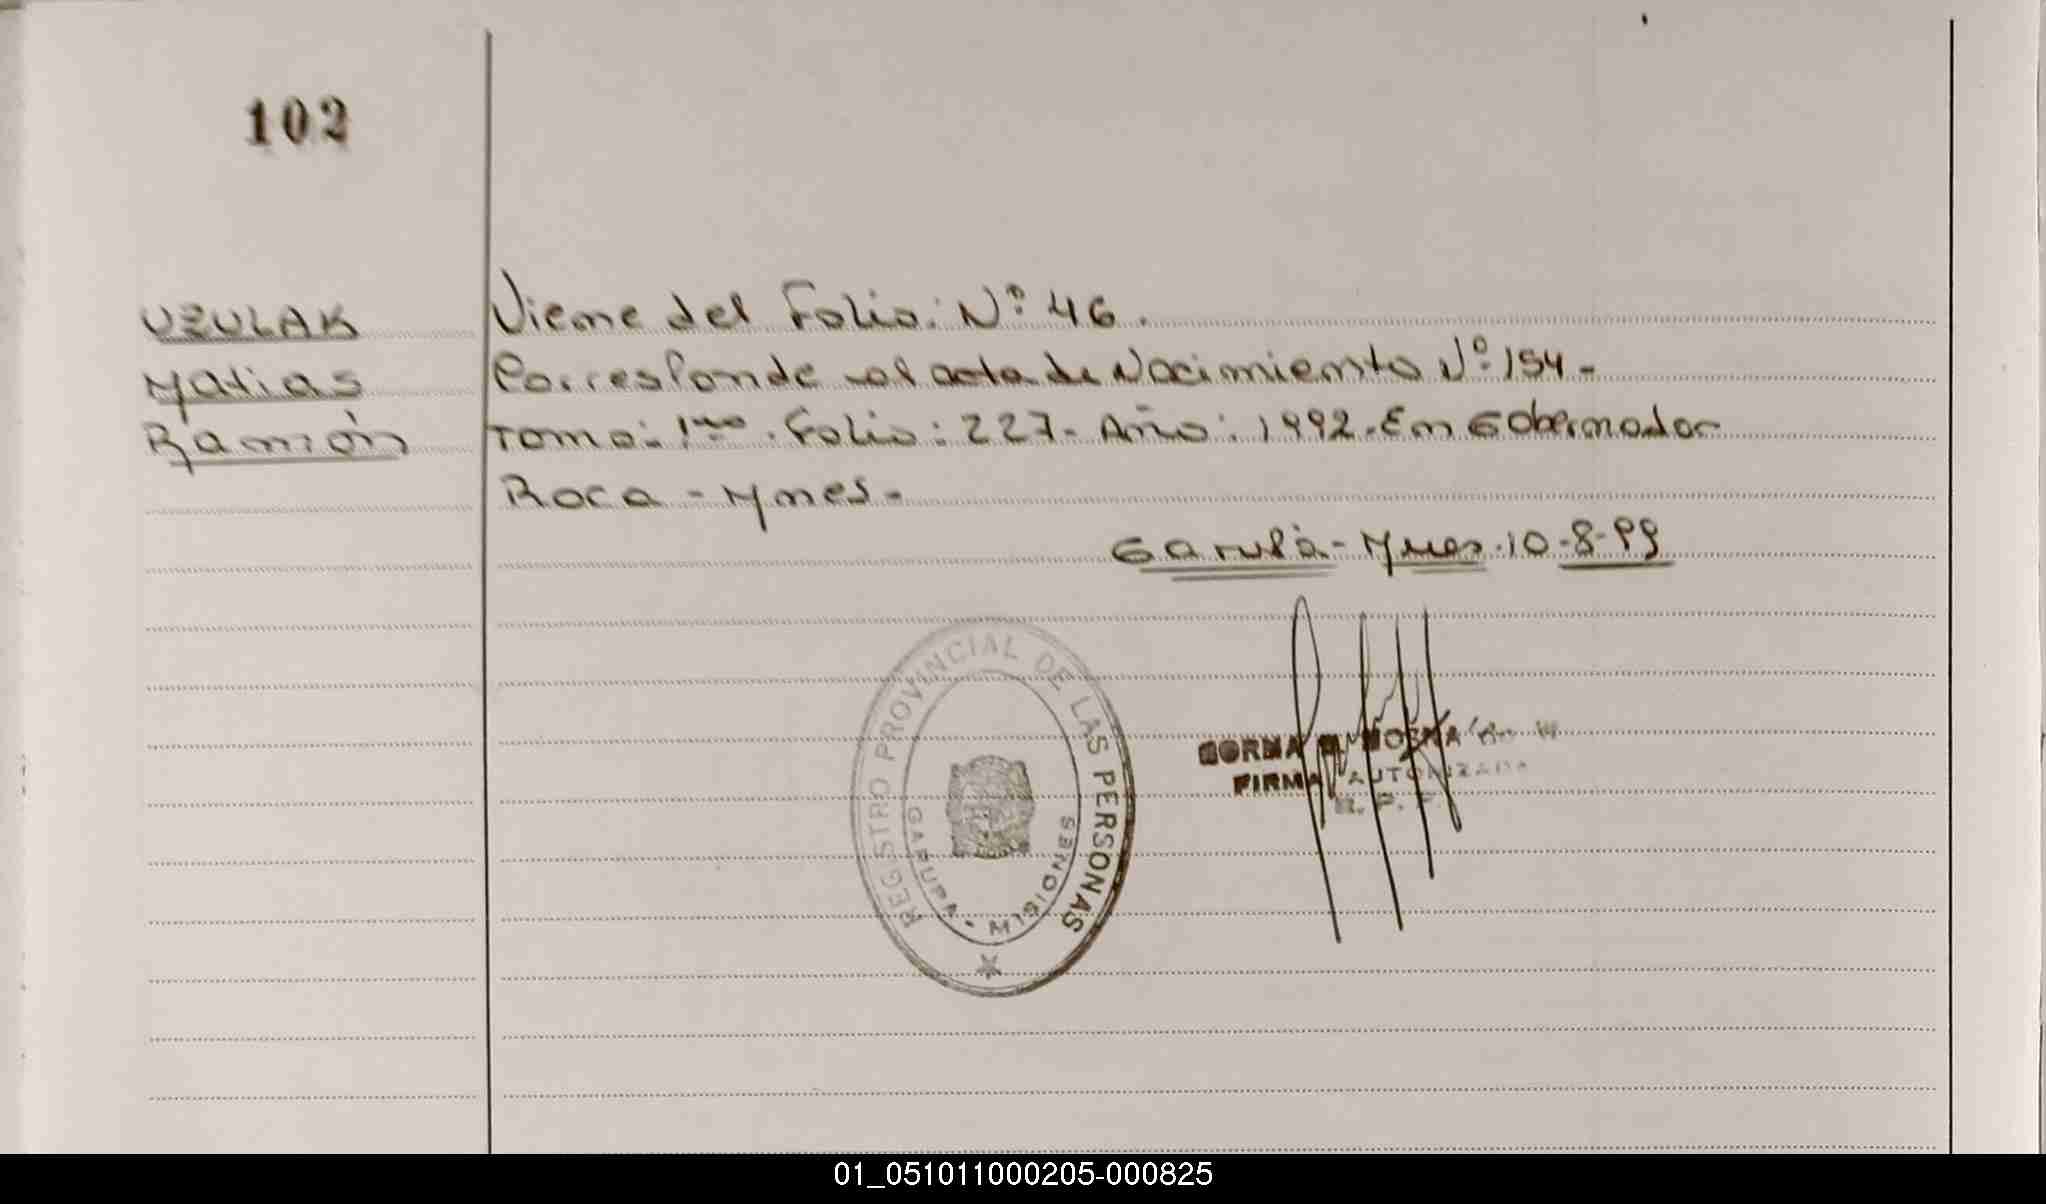 102
UZULAK
Matias
Ramón
Viene del Folio: Nº 46.
Corresponde al acta de Nacimiento Nº 154-
Tomo: 1ero. Folio: 227- Año: 1992. En Gobernador
Roca - Mnes-
Garupá - Mnes. 10-8-99
REGISTRO PROVINCIAL DE LAS PERSONAS
GARUPA - MISIONES
FIRMA AUTORIZADA
01_051011000205-000825